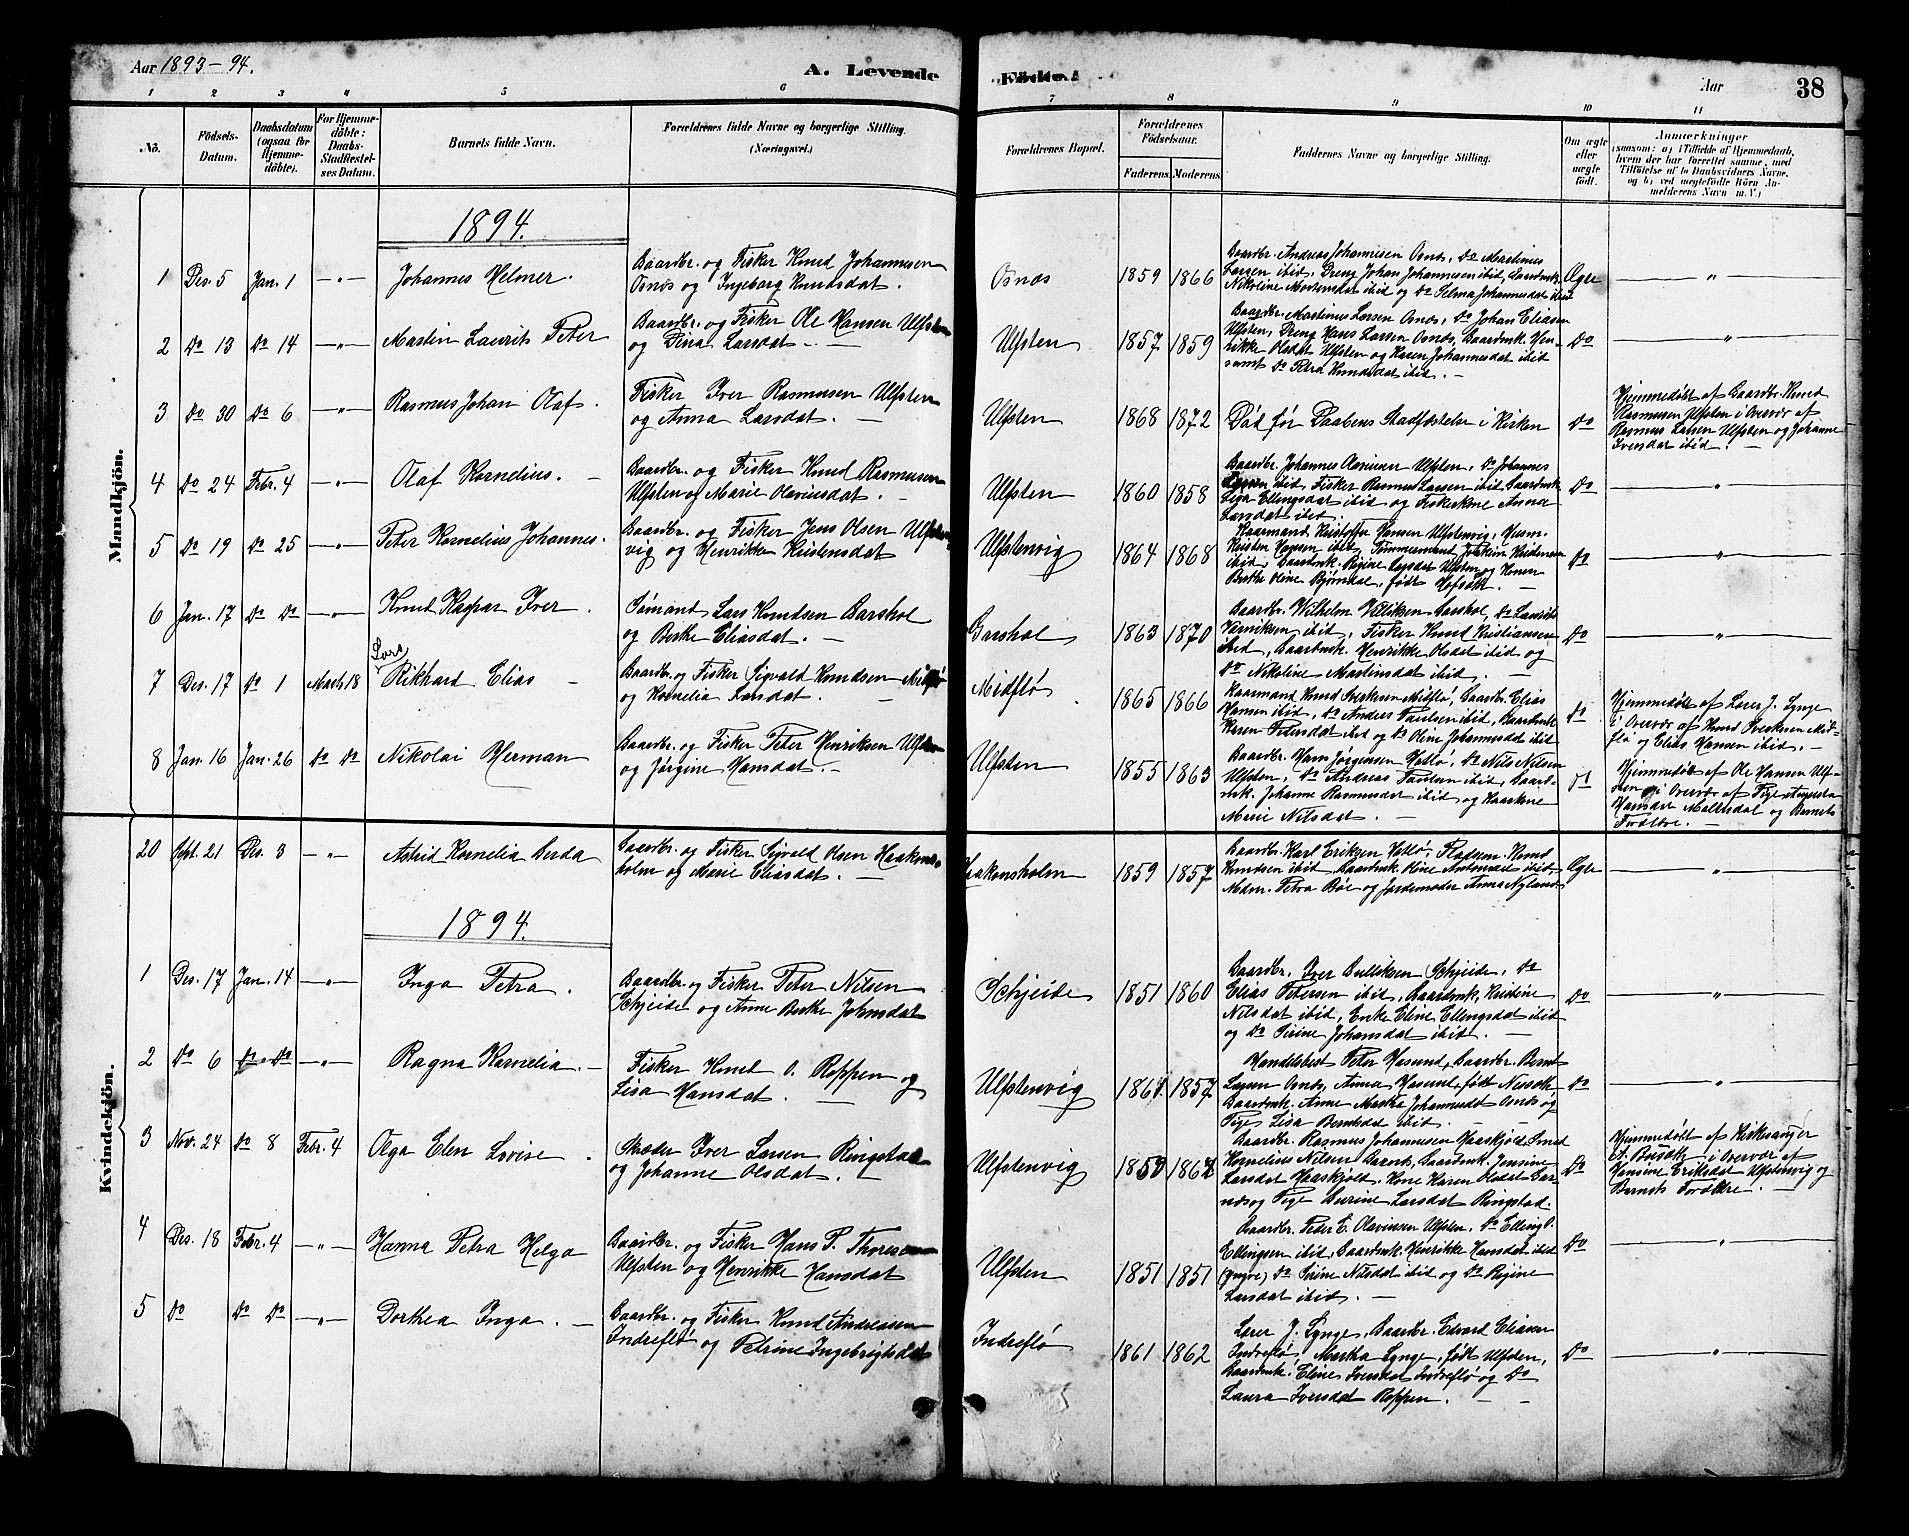 Aar 1893-94.
A. Levende
Fødte.
Aar
38
1 2 3 4 5 6 7 8 9 10 11
No.
Födsels-Datum.
Daabsdatum (ogsaa for Hjemmedöbte).
For Hjemmedöbte: Daabs-Stadfæstelses Datum.
Barnets fulde Navn.
Forældrenes fulde Navne og borgerlige Stilling.
(Næringsvei.)
Forældrenes Bopæl.
Forældrenes Födselsaar.
Faderens. Moderens.
Faddernes Navne og borgerlige Stilling.
Om ægte eller uægte födt.
Anmærkninger
(saasom: a) i Tilfælde af Hjemmedaab, hvem der har forrettet samme, med Tilföielse af to Daabsvidners Navne, og b) ved uegtefödte Börn Anmelderens Navn m. V.)
Mandkjön.
1894.
1 Des. 5 Jan. 1 -"- Johannes Helmer.
Baardbr. og Fisker Knud Johannesen
Osnes og Ingeborg Knudsdat.
Osnes 1859 1866
Baardbr. Andreas Johannesen Osnes, Do Martinus
Larsen ibid, Dreng Johan Johannesen ibid, Gaardmk.
Nikoline Mortensdat ibid og Do Selma Johannesdat ibid
Ægte "
2 Do 13 Do 14 -"- Martin Laurits Peter
Baardbr. og Fisker Ole Hansen Ulfsten
og Dina Larsdat.
Ulfsten 1857 1859
Baardbr. Martinus Larsen Osnes, Do Johan Eliasen
Ulfsten, Dreng Hans Larsen Osnes, Baardmk. Hen-
rikke Olsdat Ulfsten og Karen Johannesdat ibid
samt Do Petra Knudsdat ibid.
Do "
3 Do 30 Do 6 -"- Rasmus Johan Olaf.
Fisker Iver Rasmusen Ulfsten
og Anna Larsdat.
Ulfsten 1868 1872
Død før Daabens Stadfæstelse i Kirken
Do
Hjemmedøbt af Gaardbr. Knud
Rasmusen Ulfsten i Overvær af
Rasmus Larsen Ulfsten og Johanne
Iversdat ibid.
4 Do 24 Febr. 4 -"- Olaf Kornelius.
Baardbr. og Fisker Knud Rasmusen
Ulfsten og Marie Olariusdat.
Ulfsten 1860 1858
Baardbr. Johannes Ulfsten, Do Johannes
Larsen ibid, Fisker Rasmus Larsen ibid, Gaardmk.
Lisa Ellingsdat ibid og Fiskerkone Anna
Larsdat ibid.
Do "
5 Do 19 Do 25 -"- Peter Kornelius Johannes.
Baardbr. og Fisker Jens Olsen Ulfsten-
vig og Henrikke Kristensdat
Ulfstenvig 1864 1868
Kaarmand Kristoffer Hansen Ulfstenvig, Husm.
Kristen Hansen ibid, Tømmermand Joakim Kristensen
ibid, Gaardmk. Regine Larsdat Ulfsten og Konen
Berthe Oline Bjørndal, født Hofseth.
Do "
6 Jan. 17 Do Do -"- Knud Kaspar Iver.
Sømand Lars Knudsen Garshol
og Berthe Eliasdat.
Garshol 1863 1870
Baardbr. Wilhelm Garshol, Do Laurits
ibid, Fisker Knud Kristiansen
ibid, Gaardmk. Henrikke Olsdat ibid og
Do Nikoline Martinsdat ibid.
Do "
7 Des. 17 Do 1 Marts 18 Lars
Rikhard Elias
Baardbr. og Fisker Sigvald Knudsen Midflø
og Kornelia Larsdat.
Midflø 1865 1866
Kaarmand Knud Midflø, Gaardbr. Elias
Hansen ibid, Do Andreas Paulsen ibid, Gaardmk.
Karen Petersdat ibid og Do Oline Johannesdat ibid
Do
Hjemmedøbt af Lærer J. Lynge
i Overvær af Knud Mid-
flø og Elias Hansen ibid.
8 Jan. 16 Jan. 26 Do Do Nikolai Herman
Baardbr. og Fisker Peter Henriksen Ulfsten
og Jørgine Hansdat.
Ulfsten 1855 1863
Baardbr. Hans Jørgensen Hatlø, Do Nils Nilsen
Ulfsten, Do Andreas Paulsen ibid, Gaard-
mk. Johanne Rasmusdat ibid og Kaarkone
Marie Nilsdat.
Do
Hjemmedøbt af Ole Hansen Ulf-
sten i Overvær af Pige Augusta
Hansdat og Barnets
Forældre.
Kvindekjön.
20 Sept. 21 Des. 3 -"- Astrid Kornelia Gerda
Gaardbr. og Fisker Sigvald Olsen Haakons-
holm og Marie Eliasdat.
Haakonsholm 1859 1857
Baardbr. Karl Eriksen Hatlø, Knud
Knudsen ibid, Gaardmk. Oline ibid,
Mdm. Petra Bøe og Jordemoder Anna Nyland
Ægte "
1894.
1 Des. 17 Jan. 14 -"- Inga Petra.
Baardbr. og Fisker Peter Nilsen
Schjeide og Anne Berthe Johnsdat
Schjeide 1851 1860
Gaardbr. Iver Schjeide, Do
Elias Petersen ibid, Gaardmk. Kristine
Nilsdat ibid, Enke Eline Ellingsdat ibid
og Do Sirine Johansdat ibid.
Do "
2 Do 6 Do Do -"- Ragna Kornelia.
Fisker Knud O. Roppen og
Lisa Hansdat.
Ulfstenvig 1861 1857
Handelsbest. Peter Hasund, Gaardbr. Bernt
Larsen Osnes, Anna Hasund, født
Gaardmk. Anne Martha Johannesdat Osnes og
Pige Lisa Berntsdat ibid.
Do "
3 Nov. 24 Do 8 Febr. 4 Olga Elen Lovise.
Skræder Iver Larsen Ringstad
og Johanne Olsdat.
Ulfstenvig 1859 1862
Gaardbr. Rasmus Johannesen Haaskjold, Smed
Kornelius Nilsen, Gaardmk. Jensine
Larsdat Haaskjold, Kone Karen Olsdat Gar-
nes og Pige Larsdat Ringstad.
Do
Hjemmedøbt af Kirkesanger
i Overvær af
Hansine Eriksdat Ulfstenvig og
Barnets Forældre.
4 Des. 18 Febr. 4 -"- Hanna Petra Helga
Baardbr. og Fisker Hans P. Thoresen
Ulfsten og Henrikke Hansdat
Ulfsten 1851 1851
Gaardbr. Peder E. Olavinsen Ulfsten, Do Elling O.
Ellingsen ibid, Gaardmk. Henrikke Hansdat ibid
(Yngre) Do Sirine Nilsdat ibid og Do Regine
Larsdat ibid.
Do "
5 Do Do Do -"- Dorthea Inga.
Gaardbr. og Fisker Knud Andreasen
Indreflø og Petrine Ingebrigtsdat
Indreflø 1861 1862
Lærer J. Lynge, Gaardbr. Edvard Eliasen
Indreflø, Martha Lynge, født Ulfsten,
Gaardmk. Eline Iversdat Indreflø og Do
Laura Iversdat Roppen.
Do "